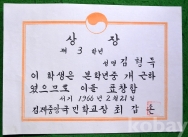 상장
제 3 학년
성명 김형욱
이 학생은 본학년중 개근하
였으므로 이를 표창함
서기 1966년 2월 21일
김제중앙국민학교장 최갑
kobay